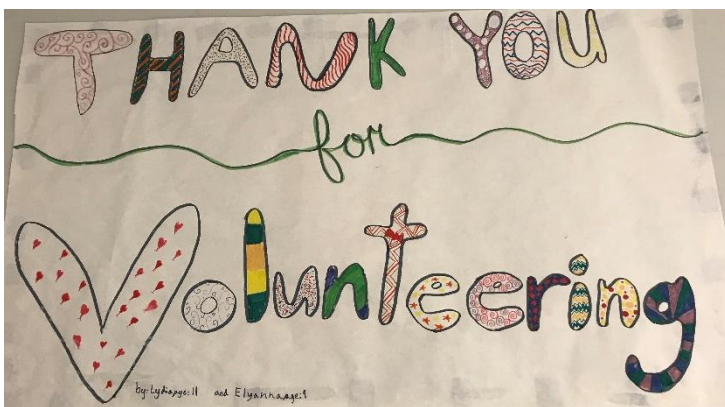 THANK YOU
for
Volunteering
by: Lydia age: 11 and Elyanna age: 9